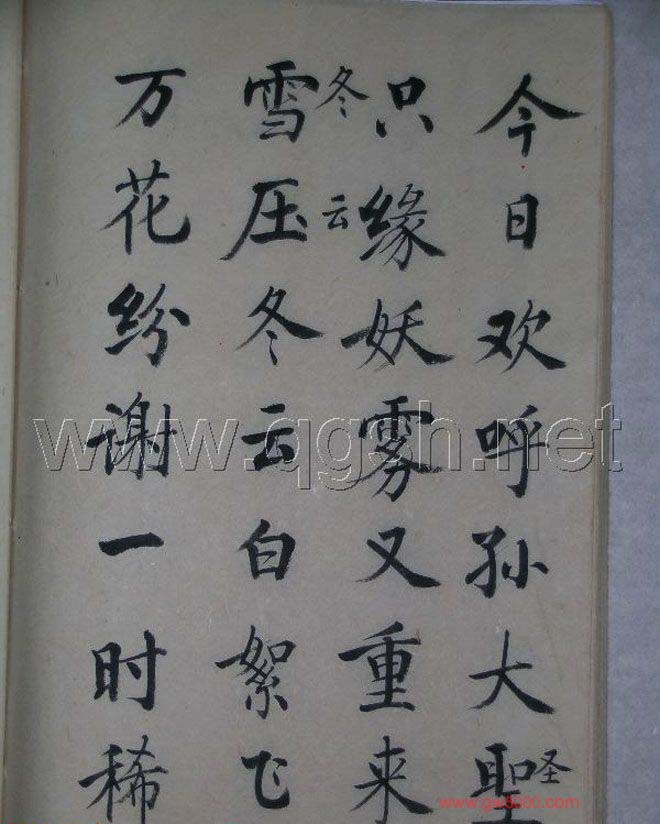 今日欢呼孙大聖
圣
只缘妖雾又重来
冬云
雪压冬云白絮飞
万花纷谢一时稀
www.qgsh.net
www.gw8000.com